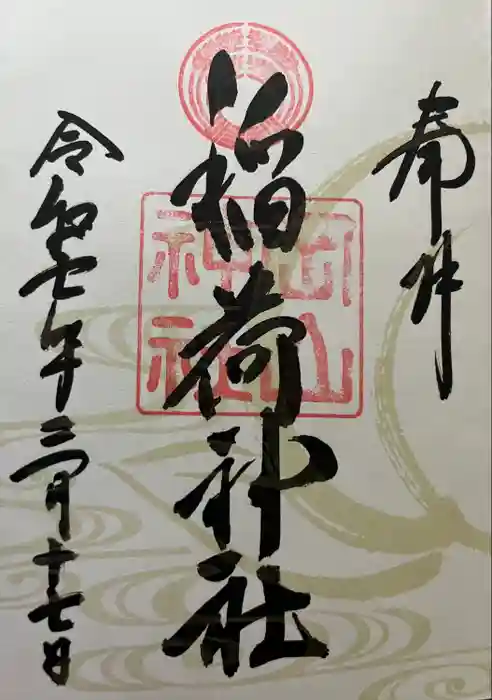 奉拝
稲荷神社
神社
令和七年三月十七日